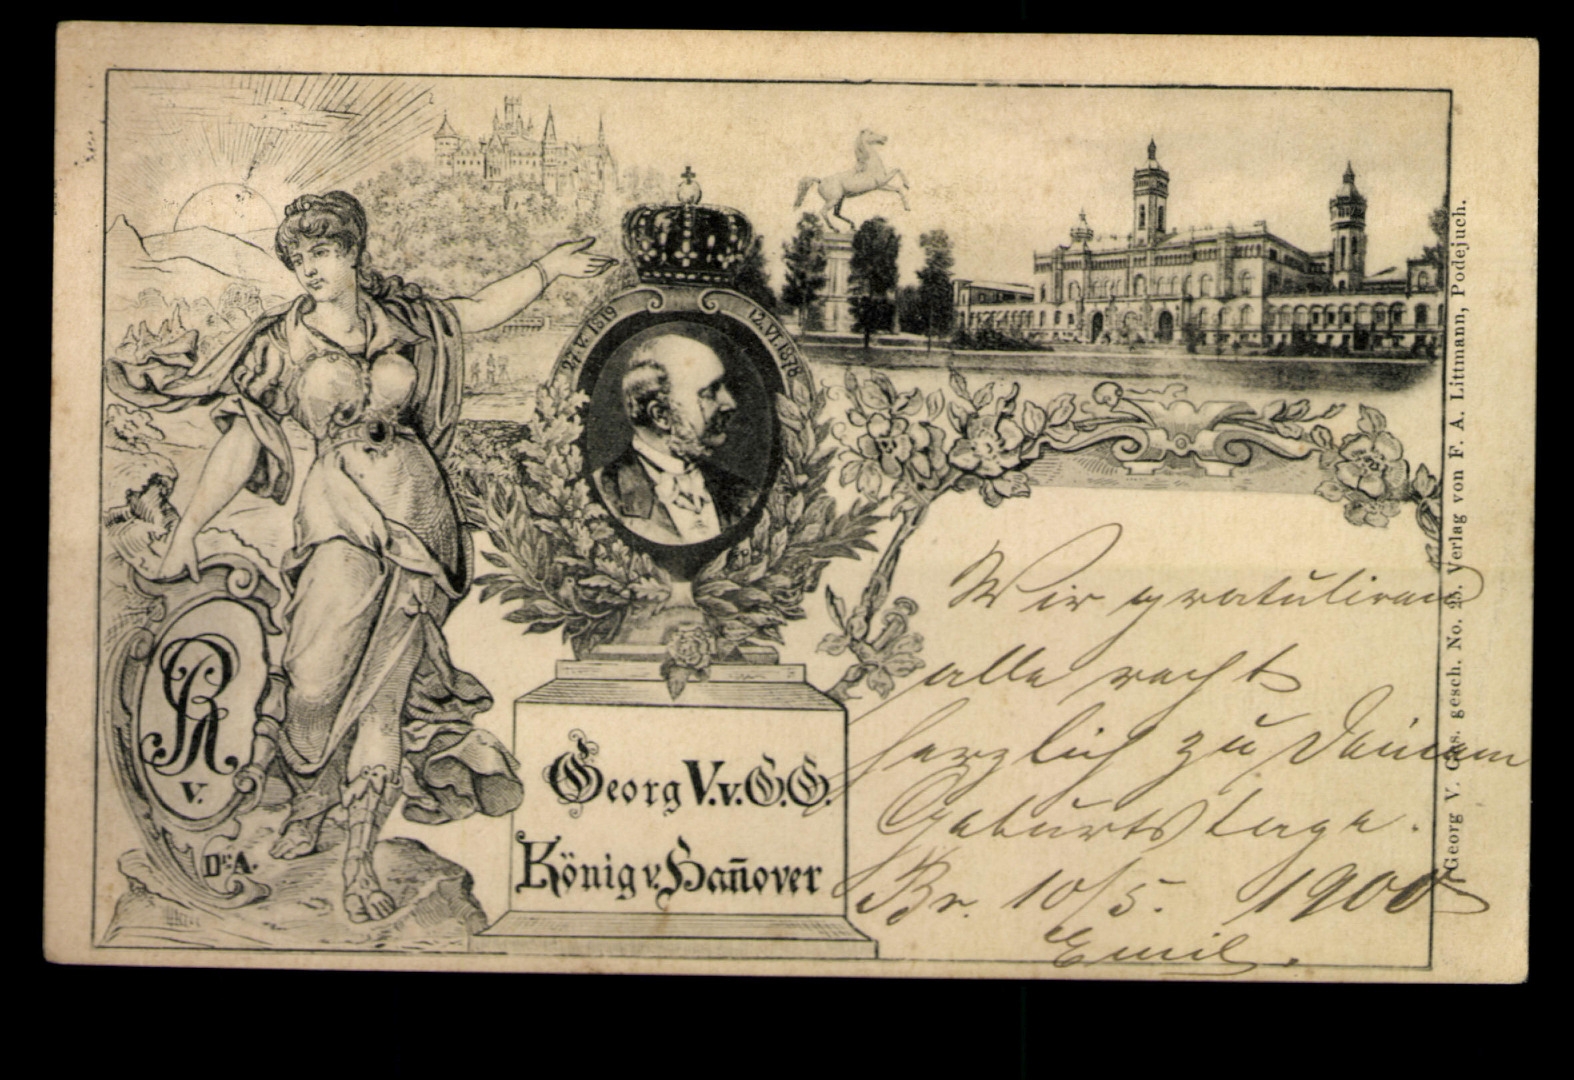 27.V.1819 12.VI.1878
GR
V.
Dr. A.
Georg V. v. G. G.
König v. Hañover
Wir gratuliren
alle recht
herzlich zu Deinem
Geburtstage.
Br. 10/5. 1900
Emil.
Georg V. Ges. gesch. No. 23. Verlag von F. A. Littmann, Podejuch.